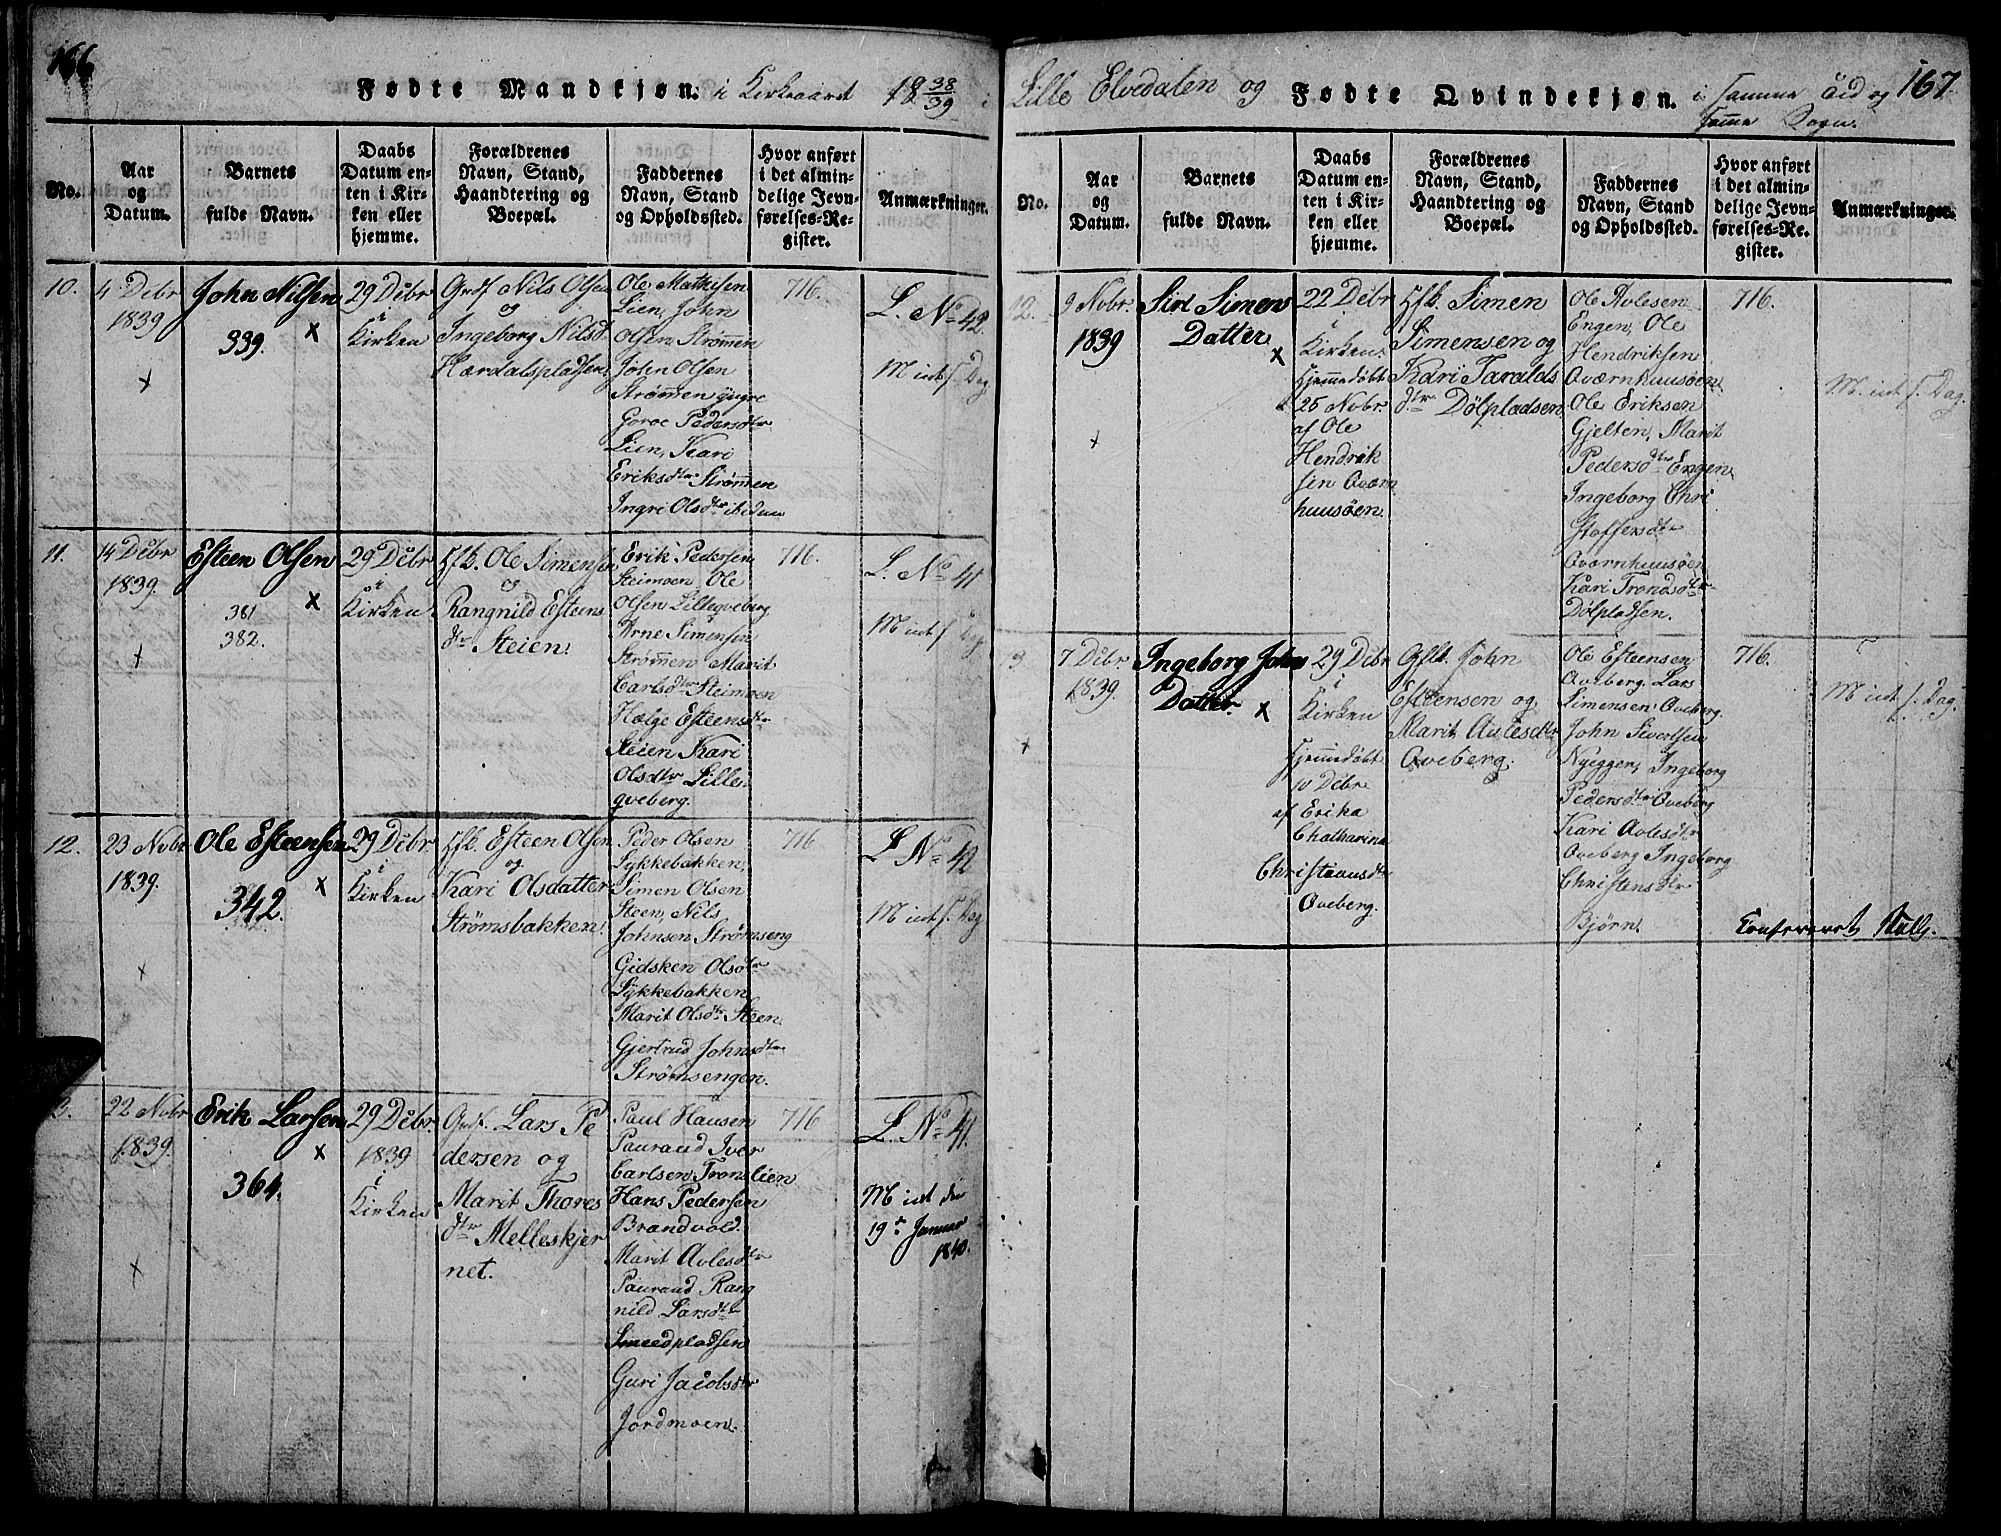 166
Fødte Mandkjøn. i Kirkeaaret 18 38/39 i
No.
Aar og Datum.
Barnets fulde Navn.
Daabs Datum enten i Kirken eller hjemme.
Forældrenes Navn, Stand, Haandtering og Boepæl.
Faddernes Navn, Stand og Opholdssted.
Hvor anført i det almindelige Jevnførelses-Register.
Anmærkninger.
10.
4 Debr
1839
+
John Nilsen
339. x
29 Debr
i
Kirken
Grdf Nils Olsen
og
Ingeborg Nilsd.
Hærdalspladsen.
Ole Mathisen
Lien, John
Olsen Strømmen
John Olsen
Strømmen yngre
Goroe Pedersdtr
Lien, Kari
Eriksdtr Strømmen
Ingri Olsdtr ibidem
716.
L. No 42.
M idt f. Dag
11.
14 Debr
1839.
+
Esteen Olsen
381 x
382.
29 Debr
i
Kirken
Hfb. Ole Simensen
og
Rangnild Esteens
dtr Steien.
Erik Pedersen
Steimoen Ole
Olsen Lilleqveberg
Arne Simensen
Strømmen Marit
Carlsdtr Steimoen
Hælge Esteensdtr
Steien Kari
Olsdtr Lille
qveberg.
716.
L. No 41
M idt f Dag
12.
23 Nobr
1839.
+
Ole Esteensen
342. x
29 Debr
i
Kirken
Hfb. Esteen Olsen
og
Kari Olsdatter
Strømsbakken.
Peder Olsen
Lykkebakken,
Simen Olsen
Steen, Nils
Johnsen Strømseng
Gidsken Olsdtr
Lykkebakken
Marit Olsdtr Steen
Gjertrud Johnsdtr
Strømsengen.
716
L No 42
M idt f. Dag
3.
22 Nobr
1839.
+
Erik Larsen
x
364.
29 Debr.
1839
i
Kirken
Grdf. Lars Pe
dersen og
Marit Thores
dtr Melleskjer
net.
Paul Hansen
Pauraud Iver
Carlsen Tronslien
Hans Pedersen
Brandvold.
Marit Avlesdtr
Pauraud Rang
nild Larsdtr
Smeedpladsen
Guri Jacobsdtr
Jordmoen.
716
L. No 41.
M idt den
19de Januar
1840.
Lille Elvedalen og Fødte Qvindekjøn. i samme Aar og 167.
samme Sogn.
No.
Aar og Datum.
Barnets fulde Navn.
Daabs Datum enten i Kirken eller hjemme.
Forældrenes Navn, Stand, Haandtering og Boepæl.
Faddernes Navn, Stand og Opholdssted.
Hvor anført i det almindelige Jevnførelses-Register.
Anmærkninger.
12.
9 Nobr.
1839
+
Siri Simens
Datter
x
22 Debr
i
Kirken.
Hjemmedøbt
25 Nobr.
af Ole
Hendrik
sen Qværn
huusøen.
Hfb. Simen
Simensen og
Kari Taralds
dtr Dølpladsen
Ole Avlesen
Engen, Ole
Hendriksen
Qværnhuusøen
Ole Eriksen
Gjelten, Marit
Pedersdtr Engen
Ingeborg Chri
stoffersdtr
Qværnhuusøen
Kari Trondsdtr
Dølpladsen.
716.
M. idt f. Dag.
13.
7 Debr
1839.
+
Ingeborg Johns
Datter.
x
29 Debr
i
Kirken
Hjemmedøbt
10 Debr
af Erika
Chatharina
Christiansdtr
Qveberg.
Gft. John
Esteensen og
Marit Avlesdtr
Qveberg.
Ole Esteensen
Qveberg, Lars
Simensen Qveberg.
John Sivertsen
Nyeggen, Ingeborg
Pedersdtr Qveberg
Kari Avlesdtr
Qveberg Ingeborg
Christensdtr
Bjørn.
716.
M idt f. Dag.
Confereret